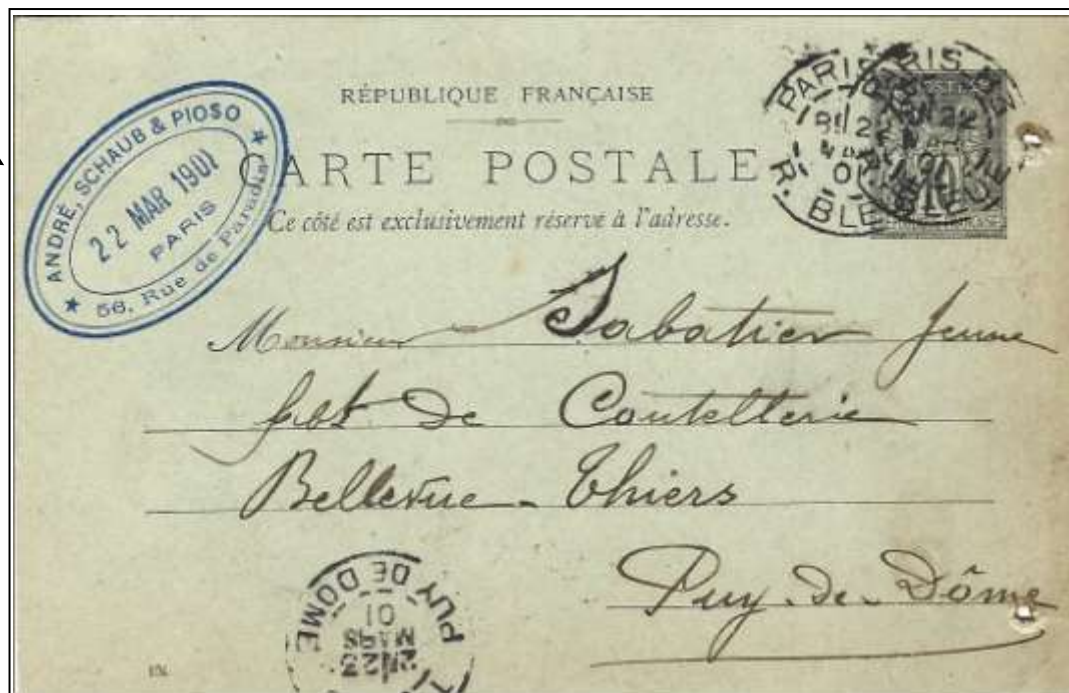 RÉPUBLIQUE FRANÇAISE
CARTE POSTALE
Ce côté est exclusivement réservé à l'adresse.
ANDRÉ, SCHAUB & PIOSO
22 MAR 1901
PARIS
56, Rue de Paradis
PARIS
R. BLEUE
Monsieur Sabatier Jeune
fabt de Coutellerie
Bellevue - Thiers
Puy-de-Dôme
PUY DE DOME
23
MARS
01